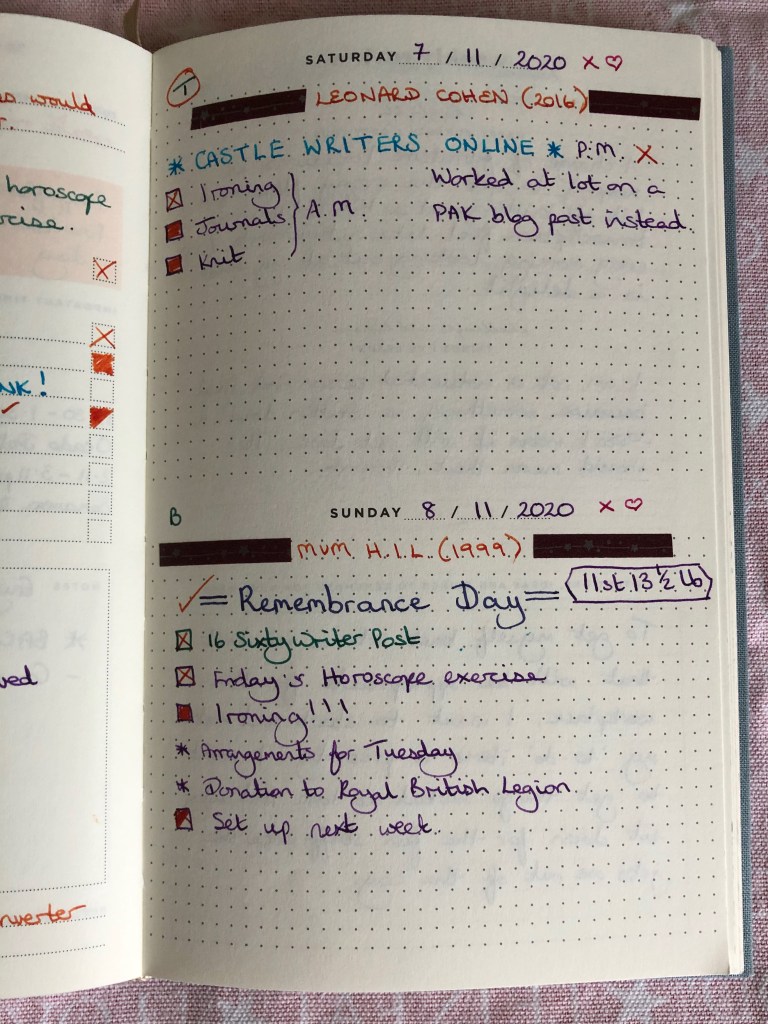 would
horoscope
NK!
SATURDAY 7 / 11 / 2020 x ♡
T
LEONARD COHEN. (2016)
* CASTLE WRITERS ONLINE * P.M. X
Ironing
Journals } A.M.
Knit.
Worked at lot on a
PAK blog post instead.
B SUNDAY 8 / 11 / 2020 x ♡
MUM H.I.L. (1999)
✓ = Remembrance Day = 11st 13 ½ lb
16 Sixty Writer Post
Friday's Horoscope exercise
Ironing!!!
* Arrangements for Tuesday
* Donation to Royal British Legion
Set up next week.